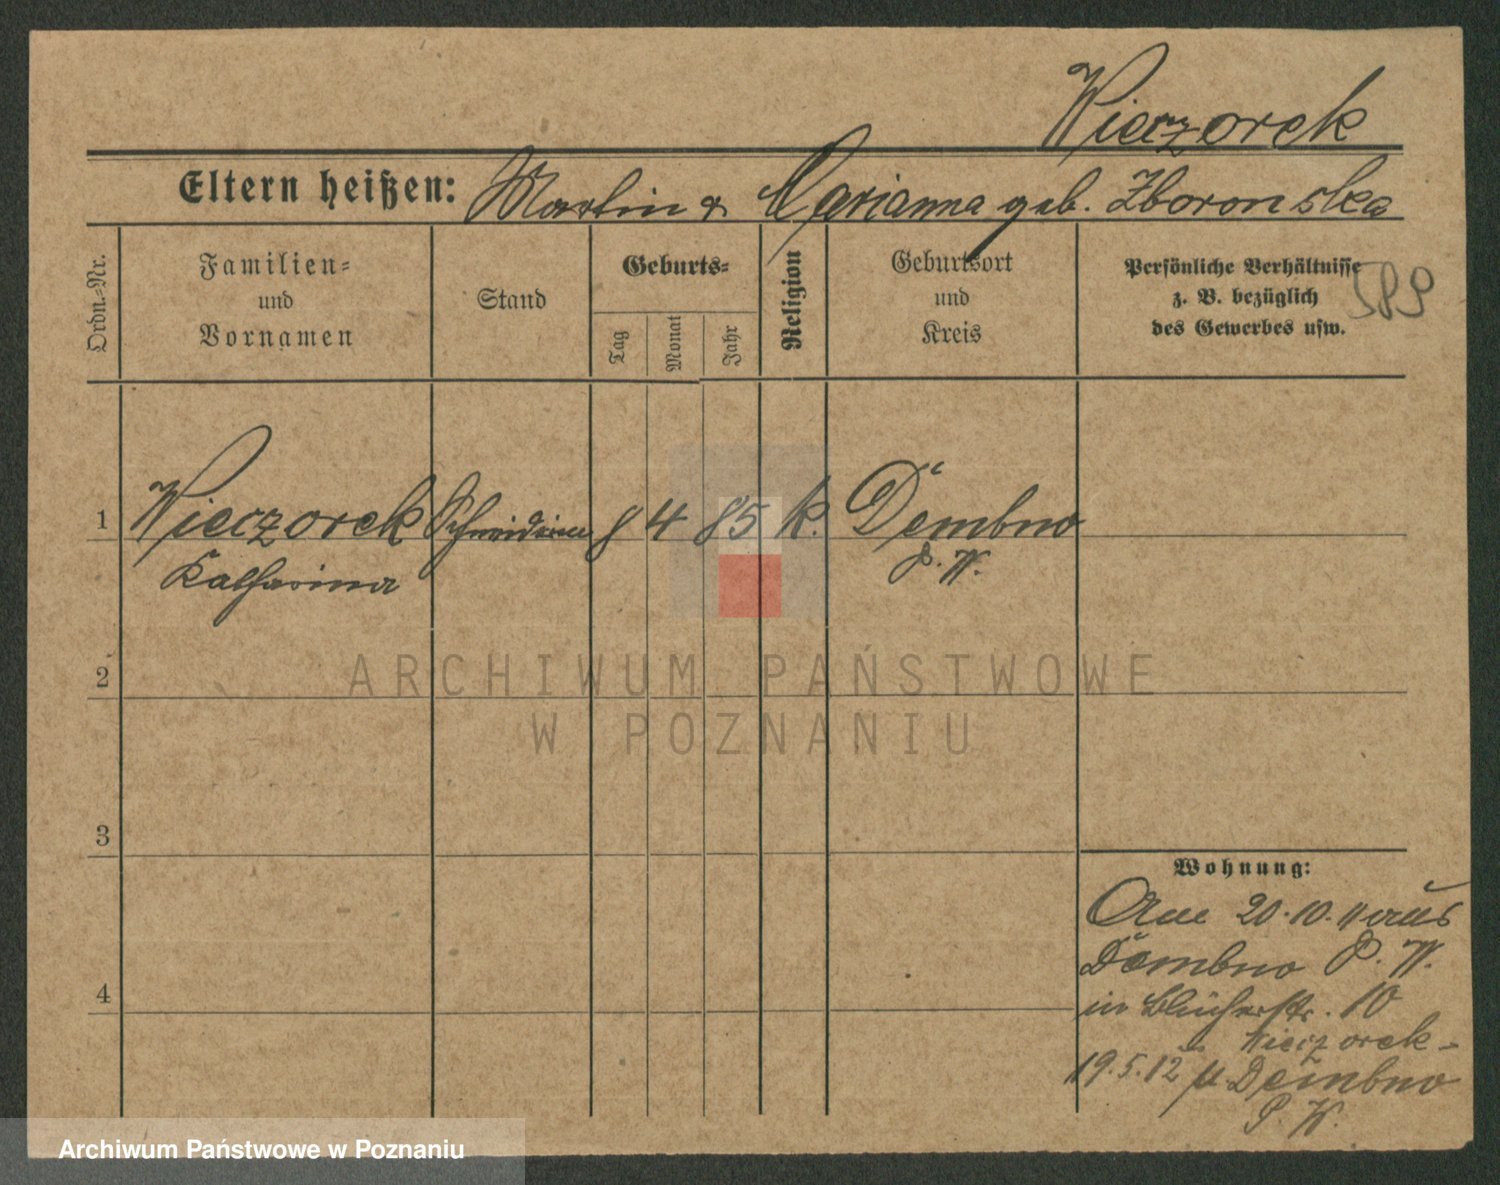 Wieczorek
Eltern heißen: Martin & Marianna geb. Zboronska
Ordn.-Nr.
Familien-
und
Vornamen
Stand
Geburts-
Tag
Monat
Jahr
Religion
Geburtsort
und
Kreis
Persönliche Verhältnisse
z. B. bezüglich
des Gewerbes usw.
589
1 Wieczorek Schneiderin 8 4 85 k. Dembno
Katharina P. W.
2
ARCHIWUM PAŃSTWOWE
W POZNANIU
3
Wohnung:
Am 20.10.11 aus
Dembno P. W.
4
in Blücherstr. 10
Wieczorek
19.5.12 n. Dembno
P. W.
Archiwum Państwowe w Poznaniu